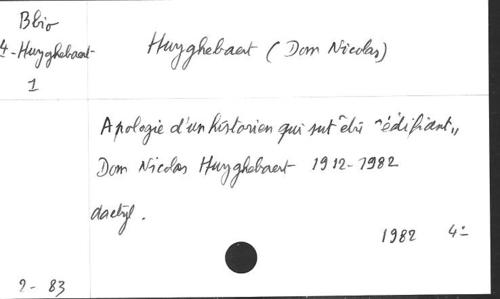 Bbio
4-Huyghebaert
1
Huyghebaert (Dom Nicolas)
Apologie d'un historien qui sut être "édifiant"
Dom Nicolas Huyghebaert 1912-1982
dactyl.
1982 4°
2-83